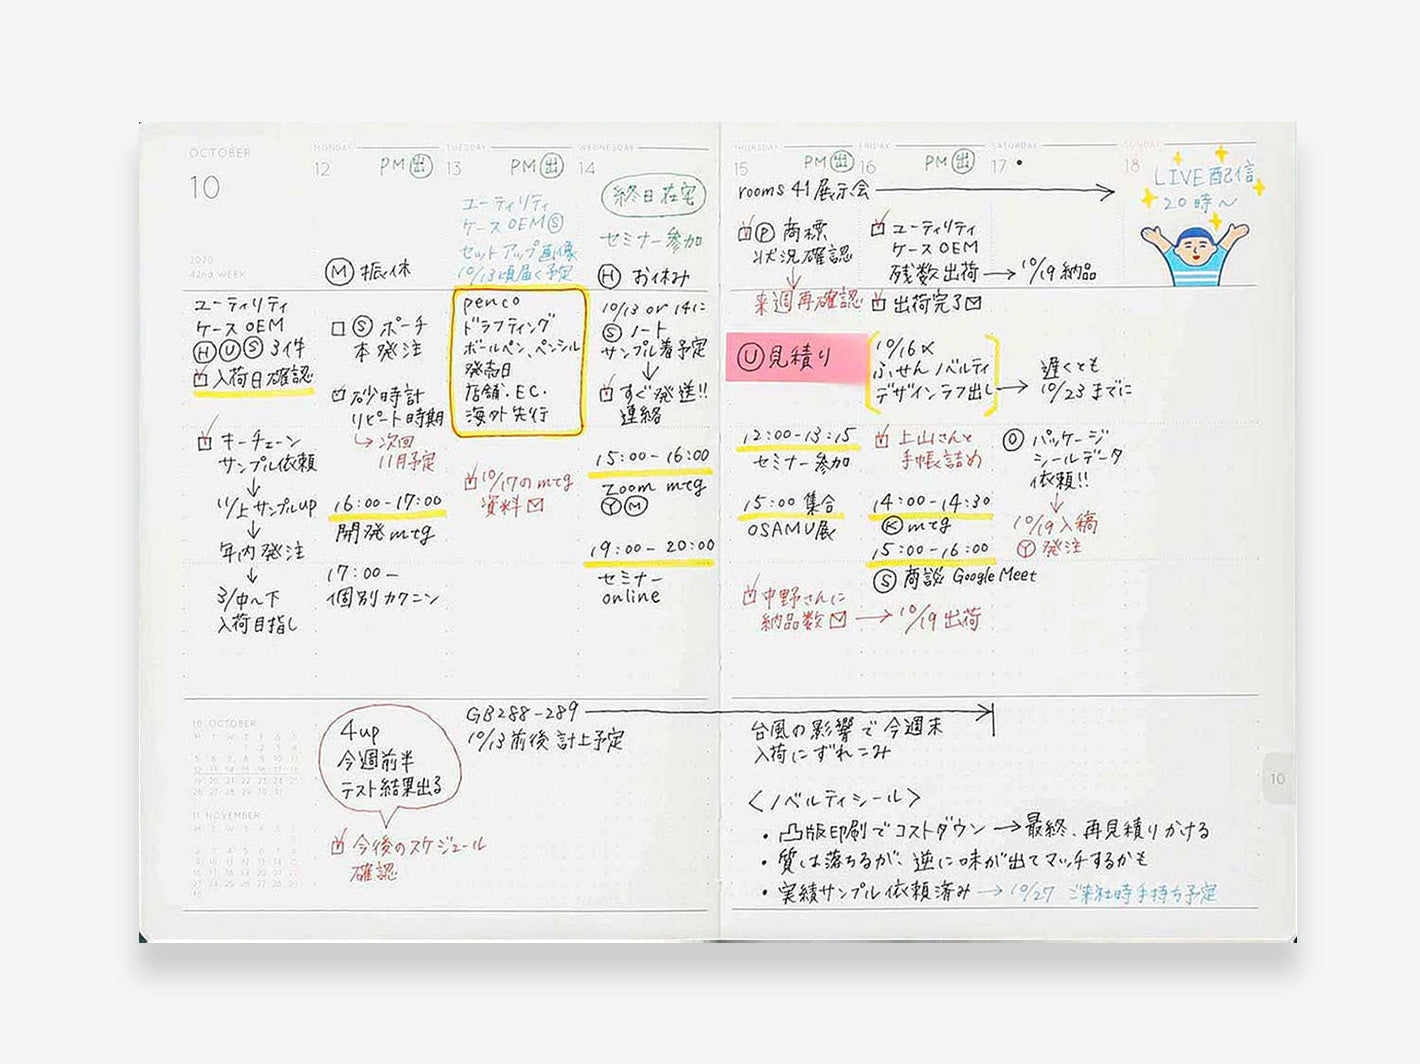 OCTOBER
10
2020
42nd WEEK
ユーティリティ
ケース OEM
Ⓗ Ⓤ Ⓢ 3件
☑ 入荷日確認
☑ キーチェーン
サンプル依頼
↓
11/上 サンプルup
↓
年内発注
↓
3/中〜下
入荷目指し
10 OCTOBER
11 NOVEMBER
MONDAY
12 PM 出
Ⓜ 振休
□ Ⓢ ポーチ
本発注
☑ 砂時計
リピート時期
↳ 次回
11月予定
16:00-17:00
開発 mtg
17:00-
個別カクニン
TUESDAY
13 PM 出
ユーティリティ
ケース OEM Ⓢ
セットアップ画像
10/13頃届く予定
penco
ドラフティング
ボールペン、ペンシル
発売日
店舗・EC・
海外先行
☑ 10/17の mtg
資料 ✉
WEDNESDAY
14
終日在宅
セミナー参加
Ⓗ お休み
10/13 or 14に
Ⓢ ノート
サンプル着予定
↓
☑ すぐ発送!!
連絡
15:00-16:00
Zoom mtg
Ⓨ Ⓜ
19:00-20:00
セミナー
online
4up
今週前半
テスト結果出る
☑ 今後のスケジュール
確認
GB288-289 →
10/13前後 計上予定
THURSDAY
15 PM 出
rooms 41 展示会 →
☑ Ⓟ 商標
状況確認
↓
来週再確認
Ⓤ 見積り
12:00-13:15
セミナー参加
15:00 集合
OSAMU展
☑ 中野さんに
納品数 ✉ → 10/19 出荷
FRIDAY
16 PM 出
☑ ユーティリティ
ケース OEM
残数出荷 → 10/19 納品
☑ 出荷完了 ✉
10/16 〆
ふせんノベルティ
デザインラフ出し →
☑ 上山さんと
手帳詰め
14:00-14:30
Ⓚ mtg
15:00-16:00
Ⓢ 商談 Google Meet
SATURDAY
17 •
遅くとも
10/23までに
Ⓞ パッケージ
シールデータ
依頼!!
↓
10/19 入稿
Ⓨ 発注
SUNDAY
18
LIVE配信
20時〜
台風の影響で今週末
入荷にずれこみ
<ノベルティシール>
・凸版印刷でコストダウン → 最終、再見積りかける
・質は落ちるが、逆に味が出てマッチするかも
・実績サンプル依頼済み → 10/27 ご来社時手持ち予定
10